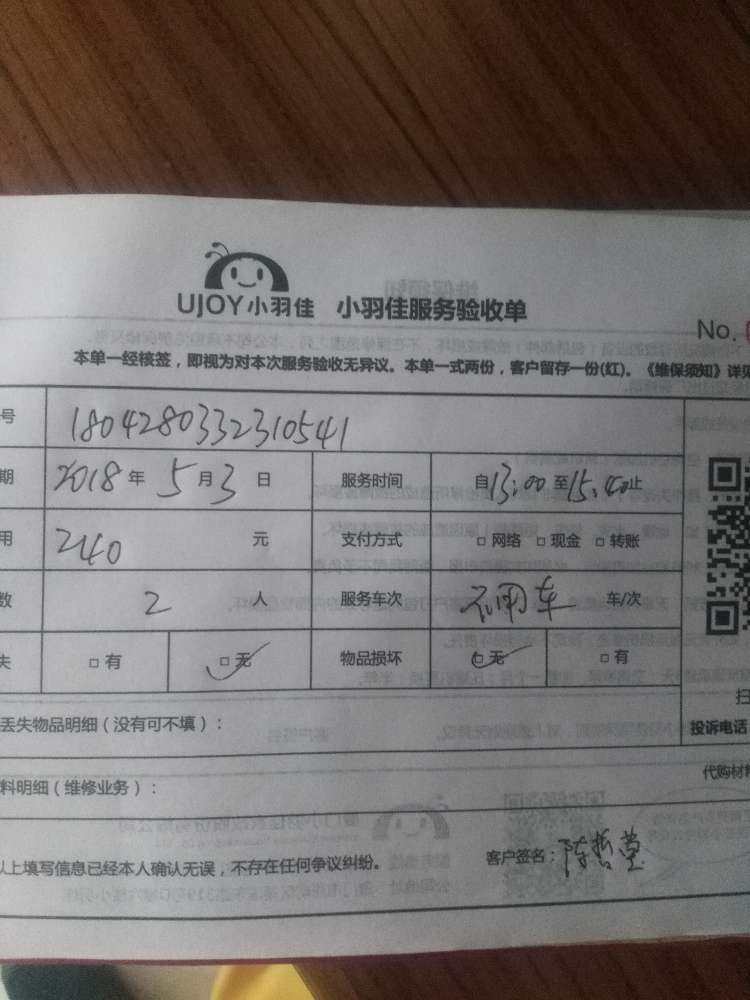 UJOY小羽佳 小羽佳服务验收单
No.
本单一经核签，即视为对本次服务验收无异议。本单一式两份，客户留存一份(红)。《维保须知》详见
号 1804280332310541
期 2018 年 5 月 3 日 服务时间 自13:00至15:40止
用 240 元 支付方式 □ 网络 □ 现金 □ 转账
数 2 人 服务车次 不用车 车/次
失 □ 有 □ 无 物品损坏 □ 无 □ 有
扫
丢失物品明细（没有可不填）：
投诉电话
料明细（维修业务）：
代购材料
以上填写信息已经本人确认无误，不存在任何争议纠纷。 客户签名：陈哲莹